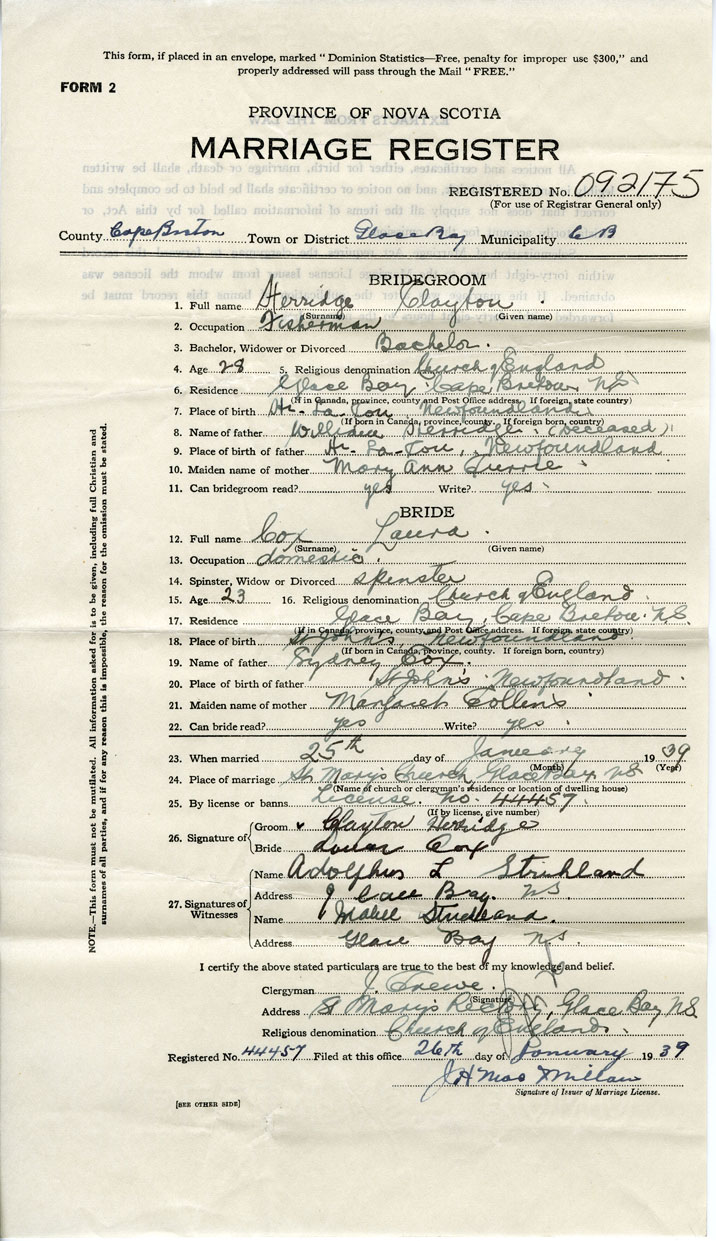 This form, if placed in an envelope, marked "Dominion Statistics—Free, penalty for improper use $300," and
properly addressed will pass through the Mail "FREE."
FORM 2
PROVINCE OF NOVA SCOTIA
MARRIAGE REGISTER
REGISTERED No. 092175
(For use of Registrar General only)
County Cape Breton Town or District Glace Bay Municipality C B
BRIDEGROOM
1. Full name Herridge Clayton
(Surname) (Given name)
2. Occupation Fisherman
3. Bachelor, Widower or Divorced Bachelor.
4. Age 28 5. Religious denomination Church of England
6. Residence Glace Bay, Cape Breton NS
(If in Canada, province, county and Post Office address. If foreign, state country)
7. Place of birth Hr- La- Cou Newfoundland.
(If born in Canada, province, county. If foreign born, country)
8. Name of father William Herridge. (Deceased)
9. Place of birth of father Hr- La- Cou, Newfoundland
10. Maiden name of mother Mary Ann
11. Can bridegroom read? yes Write? yes.
BRIDE
12. Full name Cox Laura.
(Surname) (Given name)
13. Occupation domestic.
14. Spinster, Widow or Divorced spinster
15. Age 23 16. Religious denomination Church of England.
17. Residence Glace Bay, Cape Breton N.S.
(If in Canada, province, county and Post Office address. If foreign, state country)
18. Place of birth St John's, Newfoundland.
(If born in Canada, province, county. If foreign born, country)
19. Name of father Sydney Cox.
20. Place of birth of father St John's. Newfoundland.
21. Maiden name of mother Margaret Collins
22. Can bride read? yes Write? yes.
23. When married 25th day of January 1939
(Month) (Year)
24. Place of marriage St Mary's Church, Glace Bay. NS
(Name of church or clergyman's residence or location of dwelling house)
25. By license or banns License. No. 44457.
(If by license, give number)
26. Signature of
Groom Clayton Herridge
Bride Cox
27. Signatures of Witnesses
Name Adolphus L Strickland
Address Glace Bay. NS
Name Mabel Strickland.
Address Glace Bay NS
I certify the above stated particulars are true to the best of my knowledge and belief.
Clergyman J. Frewe.
(Signature)
Address St Mary's Rectory, Glace Bay N.S.
Religious denomination Church of England.
Registered No. 44457 Filed at this office 26th day of January 1939
J H Mac Millan
Signature of Issuer of Marriage License.
[SEE OTHER SIDE]
NOTE.—This form must not be mutilated. All information asked for is to be given, including full Christian and
surnames of all parties, and if for any reason this is impossible, the reason for the omission must be stated.